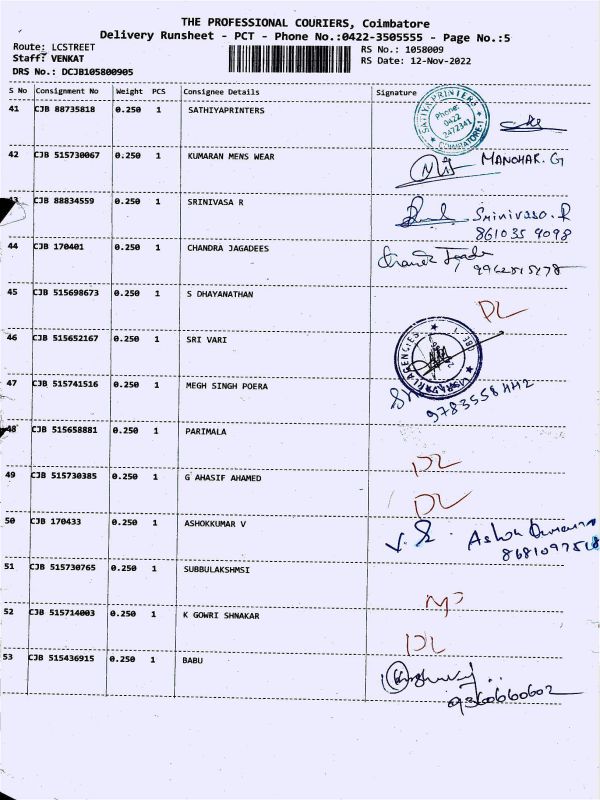 THE PROFESSIONAL COURIERS, Coimbatore
Delivery Runsheet - PCT - Phone No.:0422-3505555 - Page No.:5
Route: LCSTREET
RS No.: 1058009
Staff: VENKAT
RS Date: 12-Nov-2022
DRS No.: DCJB105800905
S No Consignment No Weight PCS Consignee Details Signature
41 CJB 88735818 0.250 1 SATHIYAPRINTERS
SATIYA PRINTERS
Phone:
0422
2472341
COIMBATORE-1
42 CJB 515730067 0.250 1 KUMARAN MENS WEAR
MANOHAR. G
43 CJB 88834559 0.250 1 SRINIVASA R
Srinivaso. R
861035 9098
44 CJB 170401 0.250 1 CHANDRA JAGADEES
45 CJB 515698673 0.250 1 S DHAYANATHAN
DL
46 CJB 515652167 0.250 1 SRI VARI
AGENCIES
CBE-1
47 CJB 515741516 0.250 1 MEGH SINGH POERA
48 CJB 515658881 0.250 1 PARIMALA
DL
49 CJB 515730385 0.250 1 G AHASIF AHAMED
DL
50 CJB 170433 0.250 1 ASHOKKUMAR V
Ashok
51 CJB 515730765 0.250 1 SUBBULAKSHMSI
52 CJB 515714003 0.250 1 K GOWRI SHNAKAR
DL
53 CJB 515436915 0.250 1 BABU
9360660602